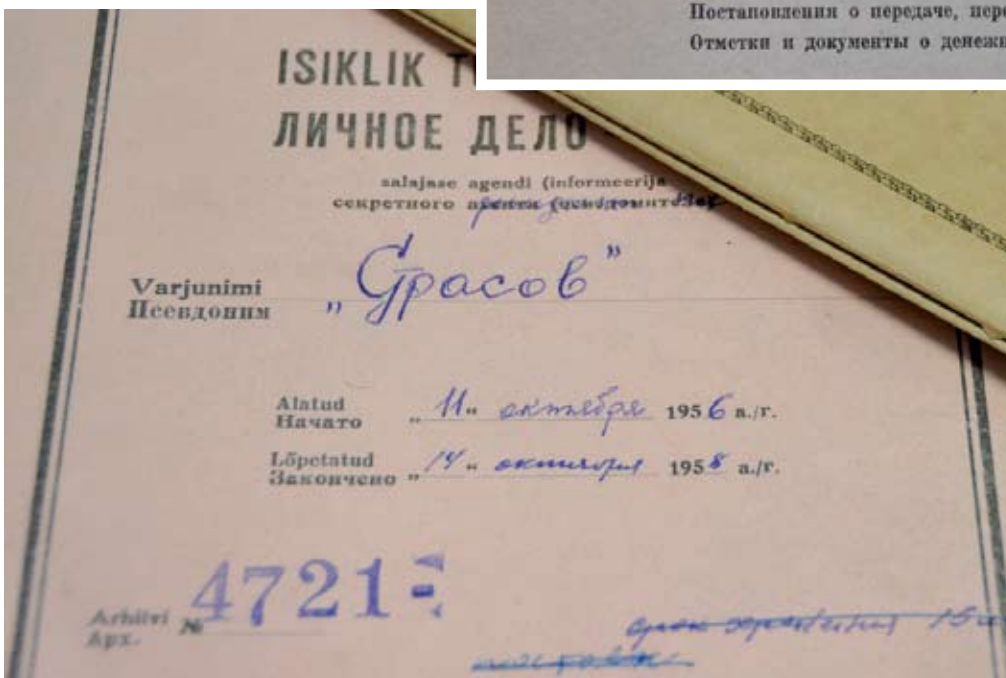 Постановления о передаче,
Отметки и документы о
ISIKLIK
ЛИЧНОЕ ДЕЛО
salajase agendi (informeerija
секретного агента (осведомителя)
Varjunimi
Псевдоним
„Страсов”
Alatud
Начато „11„ октября 1956 a./г.
Lõpetatud
Закончено „14„ октября 1958 a./г.
Arhiivi
Арх. № 4721
срок хранения 15